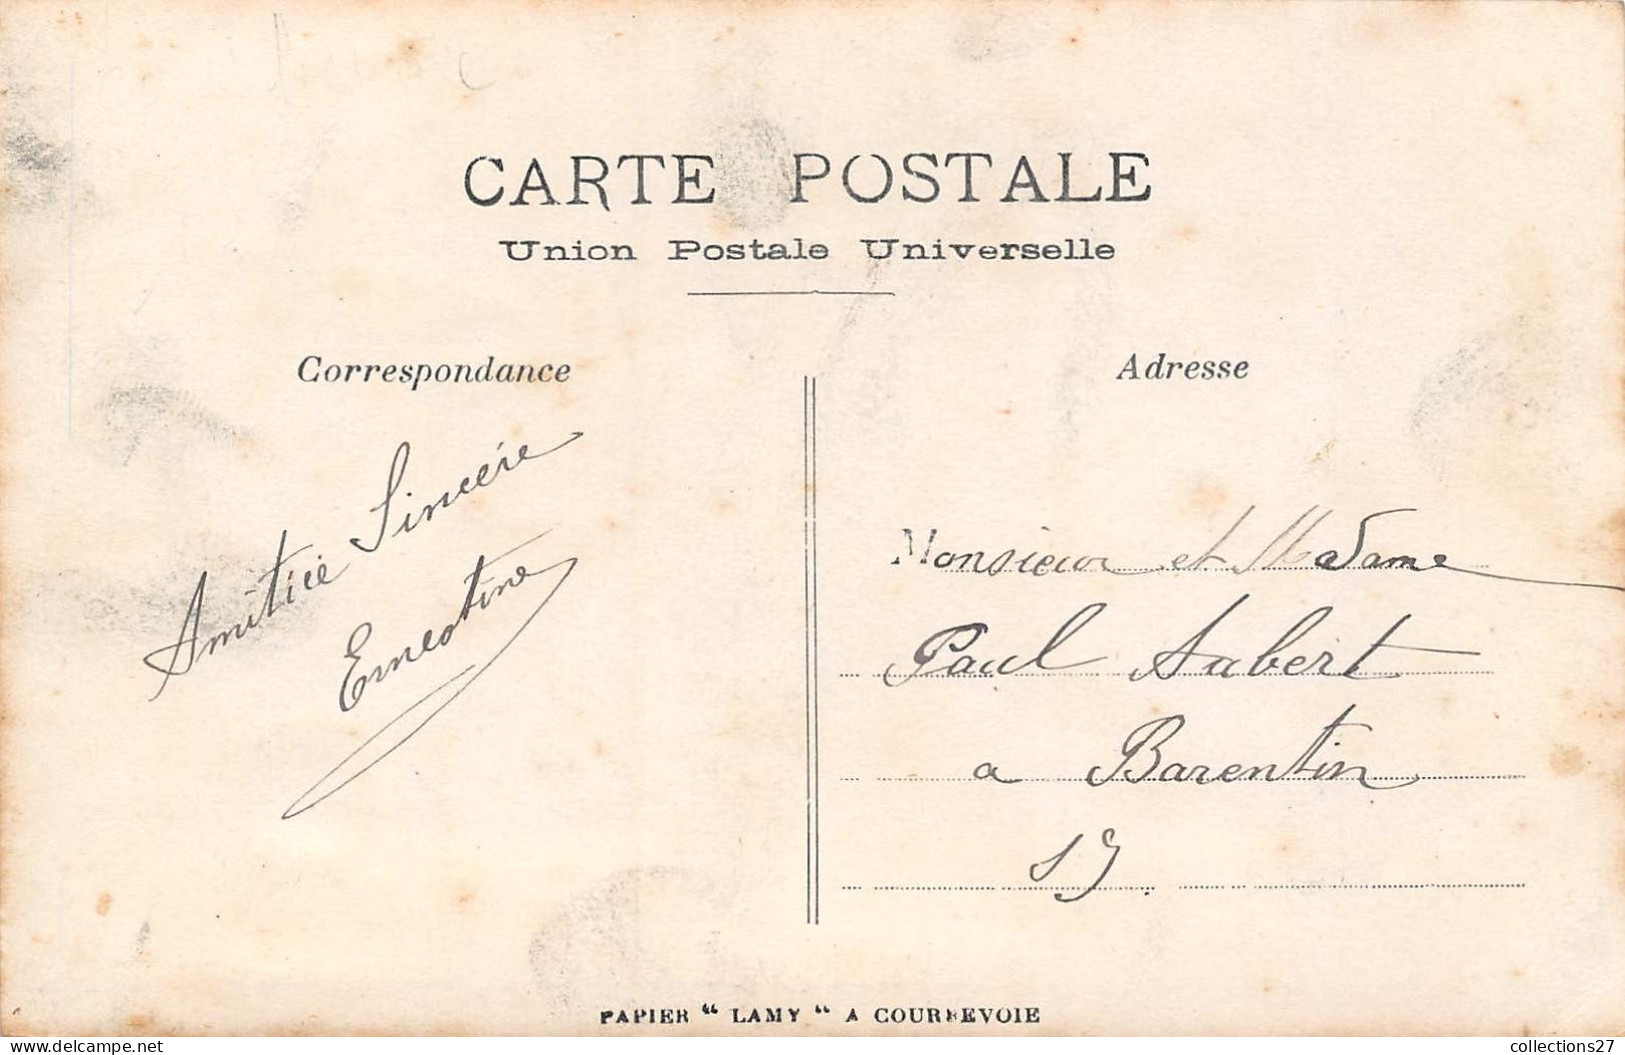 CARTE POSTALE
Union Postale Universelle
Correspondance
Adresse
Amitiée Sincére
Ernestine
Monsieur et Madame
Paul Aubert
a Barentin
PAPIER “ LAMY “ A COURBEVOIE
collections27
delcampe.net